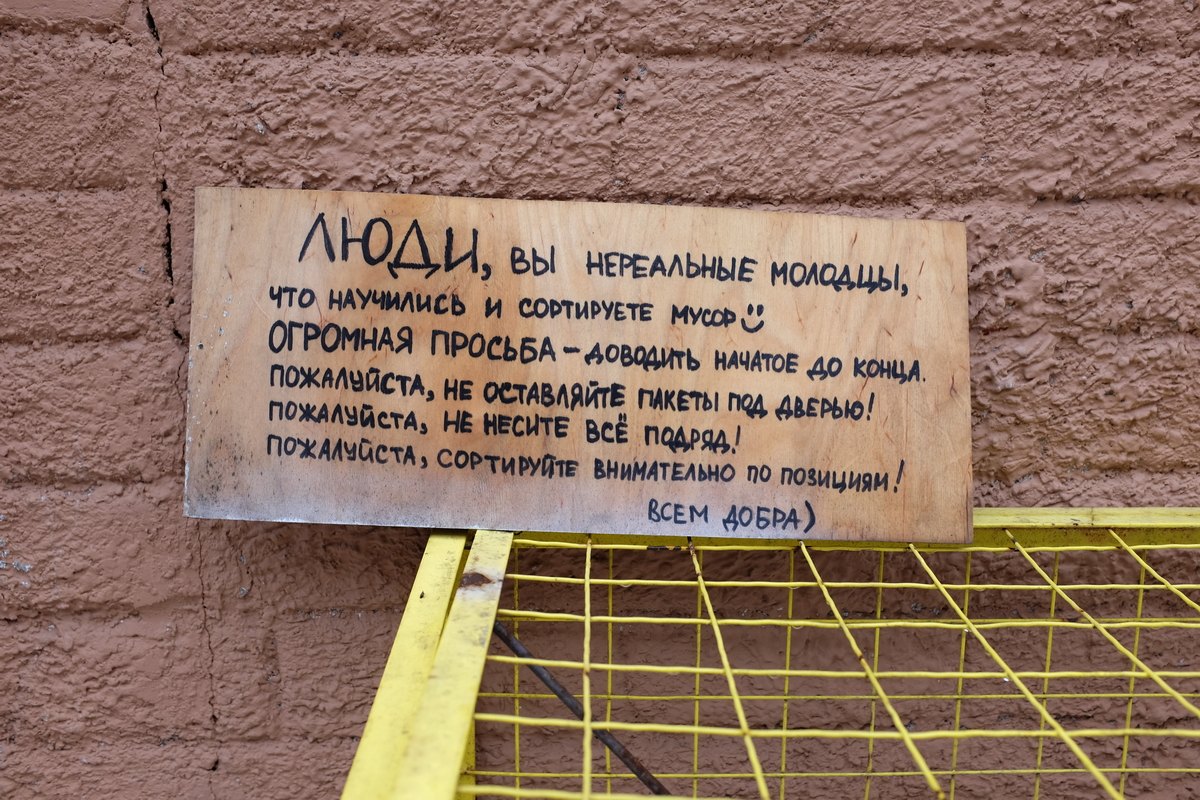 ЛЮДИ, ВЫ НЕРЕАЛЬНЫЕ МОЛОДЦЫ,
ЧТО НАУЧИЛИСЬ И СОРТИРУЕТЕ МУСОР
ОГРОМНАЯ ПРОСЬБА – ДОВОДИТЬ НАЧАТОЕ ДО КОНЦА.
ПОЖАЛУЙСТА, НЕ ОСТАВЛЯЙТЕ ПАКЕТЫ ПОД ДВЕРЬЮ!
ПОЖАЛУЙСТА, НЕ НЕСИТЕ ВСЁ ПОДРЯД!
ПОЖАЛУЙСТА, СОРТИРУЙТЕ ВНИМАТЕЛЬНО ПО ПОЗИЦИЯМ!
ВСЕМ ДОБРА)